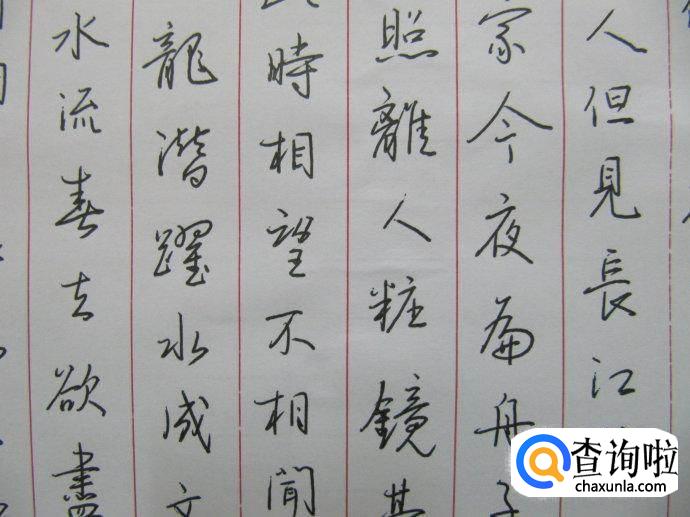 人但見長江
家今夜扁舟子
照離人粧鏡
時相望不相聞
龍潛躍水成文
水流春去欲盡
查询啦
chaxunla.com